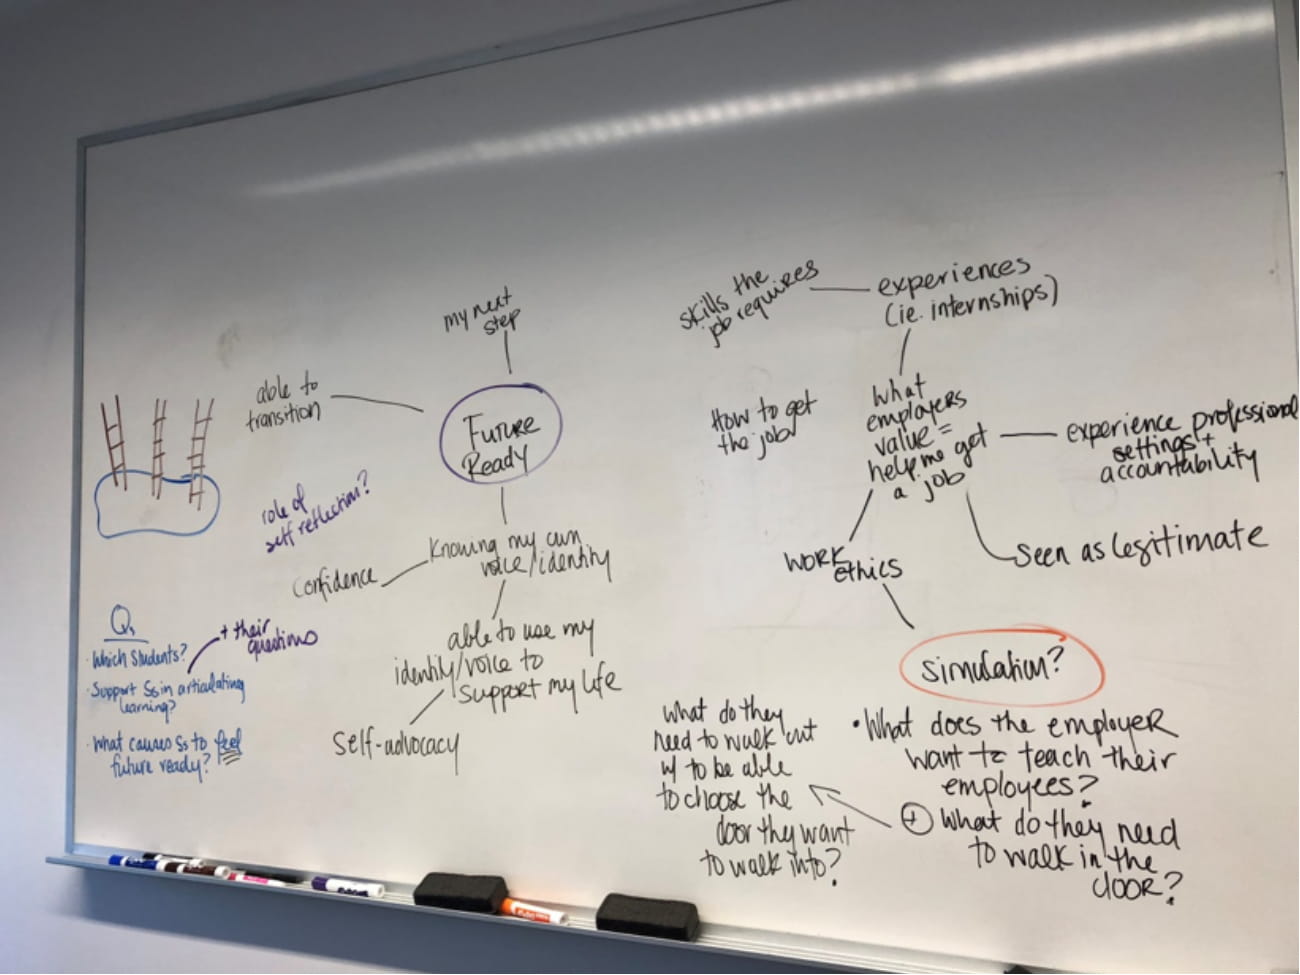 my next
step
able to
transition
Future
Ready
role of
self reflection?
Knowing my own
voice/identity
Confidence
able to use my
identity/voice to
support my life
self-advocacy
Qs
• Which students?
+ their
questions
• Support Ss in articulating
learning?
• What causes Ss to feel
future ready?
skills the
job requires
experiences
(ie. internships)
How to get
the job
What
employers
value =
help me get
a job
experience professional
settings +
accountability
Seen as legitimate
WORK
ethics
Simulation?
• What does the employer
want to teach their
employees?
+ What do they need
to walk in the
door?
What do they
need to walk out
w/ to be able
to choose the
door they want
to walk into?